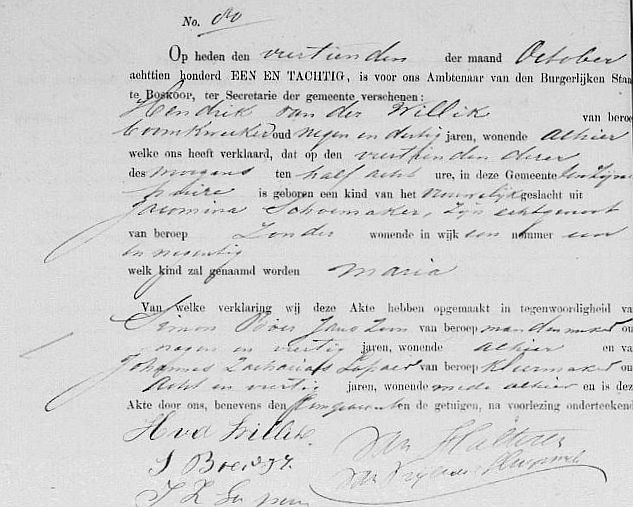 No. 80
Op heden den viertienden der maand October
achttien honderd EEN EN TACHTIG, is voor ons Ambtenaar van den Burgerlijken Staa
te Boskoop, ter Secretarie der gemeente verschenen:
Hendrik van der Willik van beroe
boomkweeker oud negen en dertig jaren, wonende alhier
welke ons heeft verklaard, dat op den viertienden dezer
des morgens ten half acht ure, in deze Gemeente ten zijne
huize is geboren een kind van het vrouwelijk geslacht uit
Jacomina Schoemaker, zijn echtgenoot
van beroep zonder wonende in wijk een nummer een
en negentig
welk kind zal genaamd worden Maria
Van welke verklaring wij deze Akte hebben opgemaakt in tegenwoordigheid va
Simon Janszoon van beroep mandenmaker ou
negen en viertig jaren, wonende alhier en va
Johannes Zacharias van beroep kleermaker ou
acht en viertig jaren, wonende mede alhier en is dez
Akte door ons, benevens den en de getuigen, na voorlezing onderteekend
H vd Willik.
S
J Z